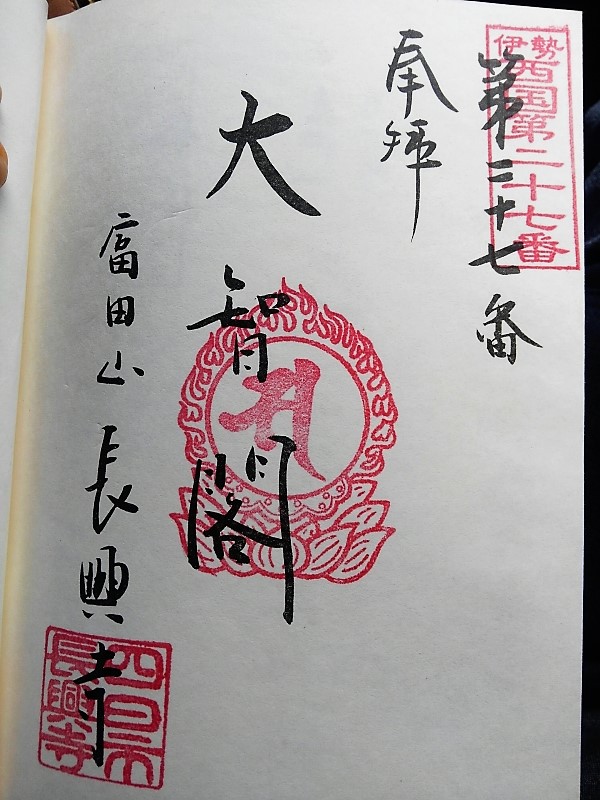 伊勢
西国第二十七番
第二十七番
奉拝
大智閣
富田山 長興寺
四日市
長興寺